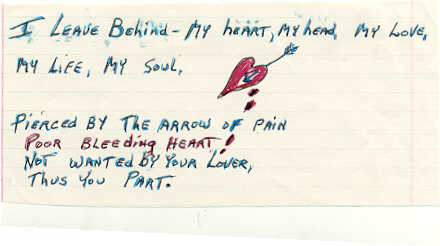 I Leave Behind - My heart, My head, My Love,
My Life, My Soul.
Pierced By The Arrow of Pain
Poor Bleeding Heart!
Not Wanted By Your Lover,
Thus You Part.